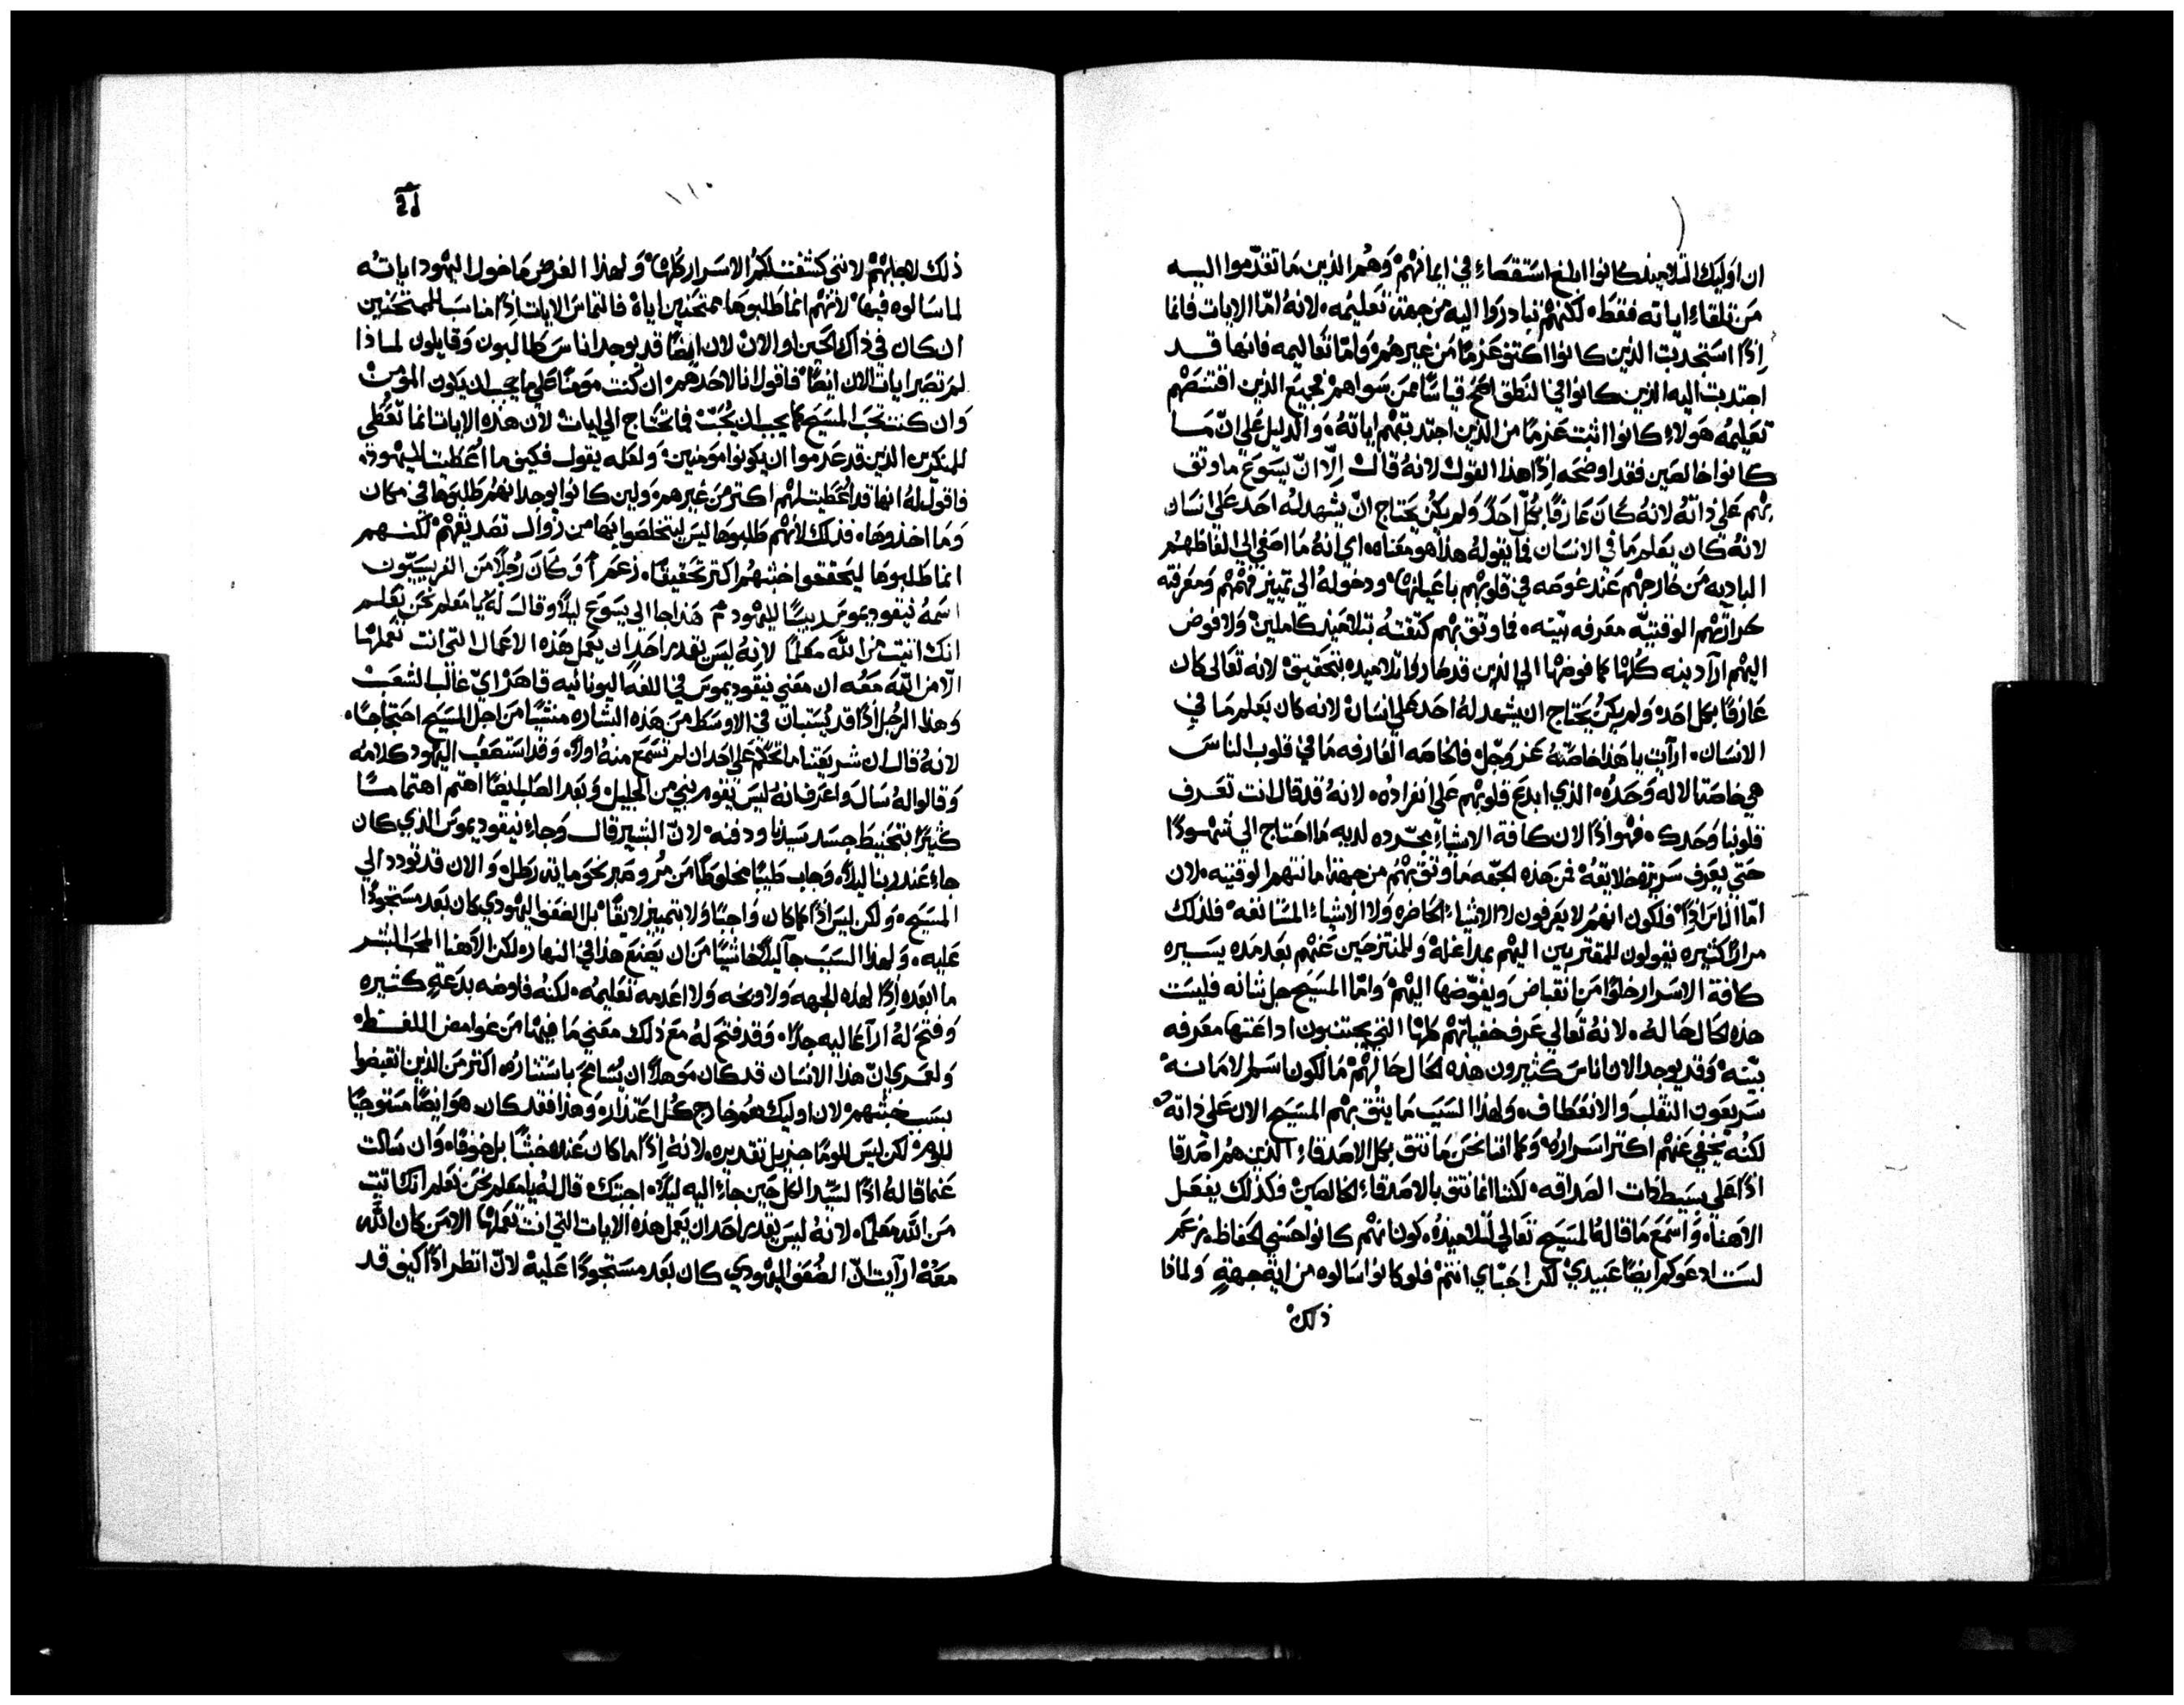 ان اوليك التلاميذ كانوا ابلغ استقصاءً في ايمانهم وهم الذين ما تقدّموا اليه
من تلقاء اياته فقط لكنهم تبادروا اليه من جهة تعليمه لانه امّا الايات فانما
اِذًا استجدبت الذين كانوا اكتف عزمًا من غيرهم وامّا تعاليمه فانها قد
اجتدبت اليه الذين كانوا في النطق اصَحّ قياسًا ممن سواهم فجميع الذين اقتنصهم
تعليمه هولاء كانوا اثبت عزمًا من الذين اجتدبتهم اياته والدليل علي انّ ما
كانوا خالصين فقد اوضحه اِذًا هذا القول لانه قال اِلّا انّ يسوع ما وثق
بهم علي ذاته لانه كان عارفًا بكل احد ولم يكن يحتاج انّ يشهد له احد علي انسان
لانه كان يعلم ما في الانسان فما يقوله هذا هو معناه اي انه ما اصغي الي الفاظهم
الباديه من خارجهم عند غوصه في قلوبهم باعيانها ودخوله الي تمييز فهمهم ومعرفته
حرارتهم الوقتيّه معرفه بيّنه فما وثق بهم كثقته بتلاميذ كاملين ولا فوض
اليهم ارآ دينه كلها كما فوضها الي الذين قد صاروا تلاميده بتحقيق لانه تعالي كان
عارفًا بكل احد ولم يكن يحتاج ان يشهد له احد علي انسان لانه كان يعلم ما في
الانسان ارآيت يا هذا خاصّته عز وجلّ فالخاصه العارفه ما في قلوب الناس
هي خاصة الاله وحده الذي ابدع قلوبهم علي انفراده لانه قد قال انت تعرف
قلوبنا وحدك فهو اِذًا لان كافة الاشياءِ مجرّده لديه ما احتاج الي شهودًا
حتي يعرف سريرة خلايقه فمن هذه الجهّه ما وثق بهم من جهة امانتهم الوقتيه لان
امّا الناس اِذًا فلكون انهم لا يعرفون لا الاشياء الحاضره ولا الاشياء المستانفه فلذلك
مرارًا كثيره يقولون للمقتربين اليهم بمداغله وللمنتزحين عنهم بعد مده يسيره
كافة الاسرار خلوًا من انقباض ويفوّضها اليهم وامّا المسيح جل شانه فليست
هذه الحال حاله لانه تعالي عرف خفياتهم كلها التي يجتنبون اداعتها معرفه
بيّنه وقد يوجد الان اناس كثيرون هذه الحال حالهم مالكون اسم الامانه
سريعون التقلب والانعطاف ولهذا السبب ما يثق بهم المسيح الان علي ذاته
لكنه يخفي عنهم اكتر اسراره وكما اننا نحن ما نثق بكل الاصدقاء الذين هم اصدقا
اذًا علي بسيط ذات الصداقه لكننا انما نثق بالاصدقاء الخالصين فكذلك يفعل
الاهنا واسمع ما قاله المسيح تعالي لتلاميذه كون انهم كانوا حسني الحفاظ زعم
لست ادعوكم ايضًا عبيدي لكن احبّاي انتم فلو كانوا سالوه من اية جهةٍ ولماذا
ذلك
١١٠
ذلك اجابهم لانني كشفت لكم الاسرار كلها ولهذا الغرض ما خول اليهود اياته
لما سالوه فيها لانهم انما طلبوها ممتحنين اياه فالتماس الايات اِذًا مناسب للممتحنين
ان كان في ذاك الحين او الان لان ايضًا قد يوجد اناس طالبون وقايلون لماذا
لم تصير ايات الان ايضًا فاقول انا لاحدهم ان كنت مومنًا علي ما يجب ان يكون المومن
وان كنت تحب المسيح كما يجب ان يُحَبّ فما تحتاج الي ايات لان هذه الايات انما تُعطي
للمنكرين الذين قد عدموا ان يكونوا مومنين ولعله يقول فكيف ما اُعطيت لليهود
فاقول له انها قد اُعطيت لهم اكتر من غيرهم ولين كانوا يوجد انهم طلبوها في مكان
وما اخذوها فذلك لانهم طلبوها ليس ليتخلصوا بها من زوال تصديقهم لكنهم
انما طلبوها ليحققوا خبثهم اكتر تحقيقًا زعم وكان رجلاً من الفريسيّون
اسمه نيقوديموس رييسًا لليهود هذا جا الي يسوع ليلاً وقال له يا معلم نحن نعلم
انك اتيت من اللّه معلمًا لانه ليس يقدر احد ان يعمل هذه الاعمال التي انت تعملها
الّا من اللّه معه ان معني نيقوديموس في اللغه اليونانيه قاهر اي غالب الشعب
وهذا الرجل اذًا قد يستبان في الاوسط من هذه البشاره منشيًا من اجل المسيح احتجاجًا
لانه قال ان شريعتنا ما تحكم علي احد ان لم تسمع منه اولاً وقد استصعب اليهود كلامه
وقالوا له سال واعرف انه ليس يقوم نبي من الجليل وبعد الصلب ايضًا اهتم اهتمامًا
كثيرًا بتحنيط جسد سيدنا ودفنه لانّ البشير قال وجاء نيقوديموس الذي كان
جاء عند ربنا ليلاً وجاب طيبًا مخلوطًا من مُر وصبر نحو ماية رطل والان قد تودد الي
المسيح ولكن ليس اذًا كما كان واجبًا ولا بتمييز لايقًا بل الضعف اليهودي كان بعد مستحوذًا
عليه ولهذا السبب جآ ليلاً خاشيًا من ان يصنع هذا في النهار لكن الاهنا المحب البشر
ما ابعده اِذًا لهذه الجهه ولا وبخه ولا اعدمه تعليمه لكنه فاوضه بدعةٍ كثيره
وفتح له ارآ عاليه جدًا وقد فتح له مع ذلك معني ما فيها من غوامض اللفظ
ولعمري انّ هذا الانسان قد كان موهلاً ان يُسامح باستتاره اكتر من الذين انقبضوا
بسبب خبثهم لان اوليك هم خارج كل اعتذار وهذا فقد كان هو ايضًا مستوجبًا
للوم لكن ليس للومًا جزيل تقديره لانه اِذًا ما كان عنده خبثًا بل خوفًا وان سالت
عما قاله اذًا لسيّد الكل حين جاء اليه ليلاً اجبتك قال له يا معلم نحن نعلم انك اتيت
من اللّه معلمًا لانه ليس يقدر احد ان يعمل هذه الايات التي انت تعملها الا من كان اللّه
معه ارآيت انّ الضعف اليهودي كان بعد مستحوذًا عليه لانّ انظر اذًا كيف قد